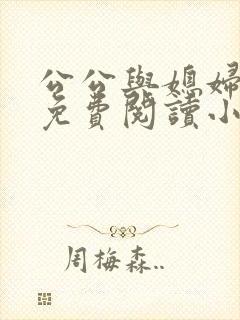 公公與媳婦
免費閱讀小
周梅森..